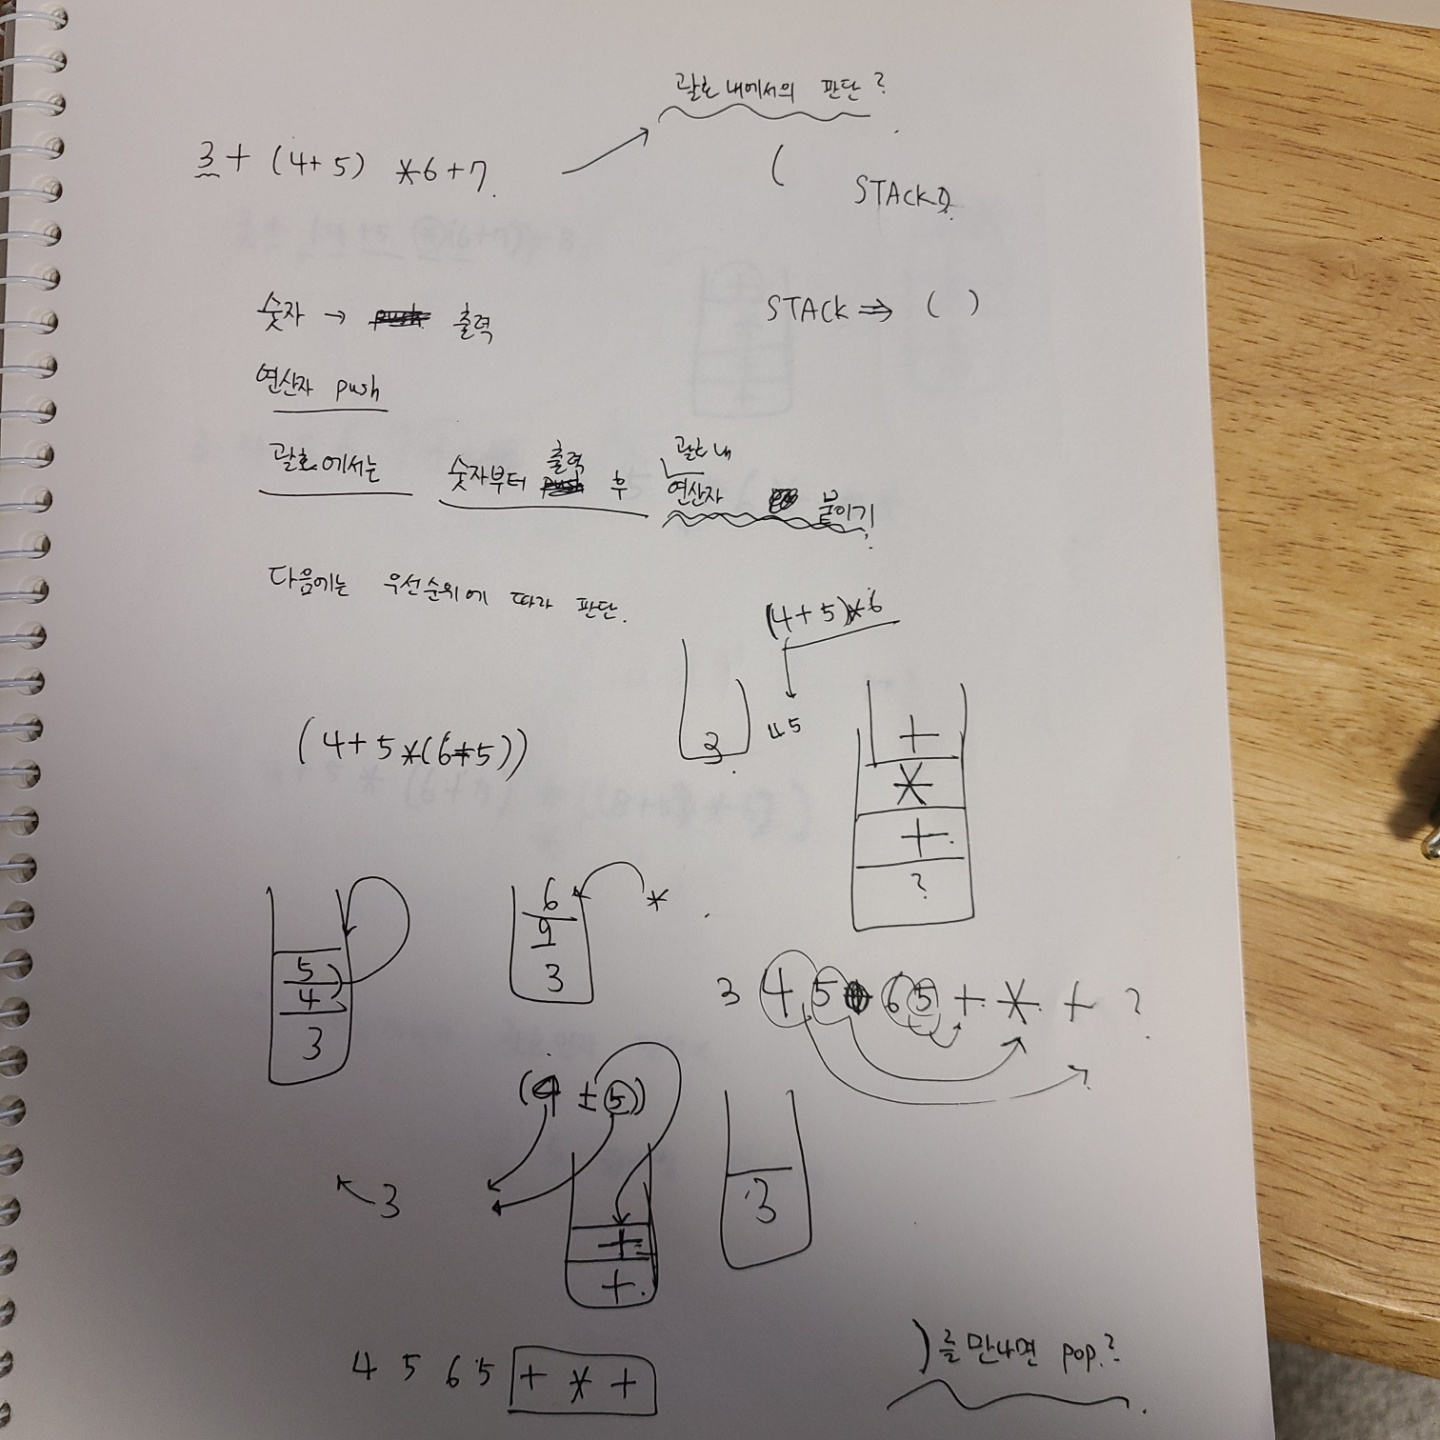 괄호 내에서의 판단?
3 + (4+5) *6+7.
(
STACK
STACK ⇒ ( )
숫자 → 출력
연산자 push
괄호에서는 숫자부터 출력 후 괄호 내 연산자 붙이기
다음에는 우선순위에 따라 판단.
(4+5)*6
3
45
(4+5*(6+5))
+
*
+
?
5
4
3
6
9
3
*
3 4 5 6 5 + * + ?
(4 + 5))
3
+
+
3
4 5 6 5 + * +
)를 만나면 pop.?